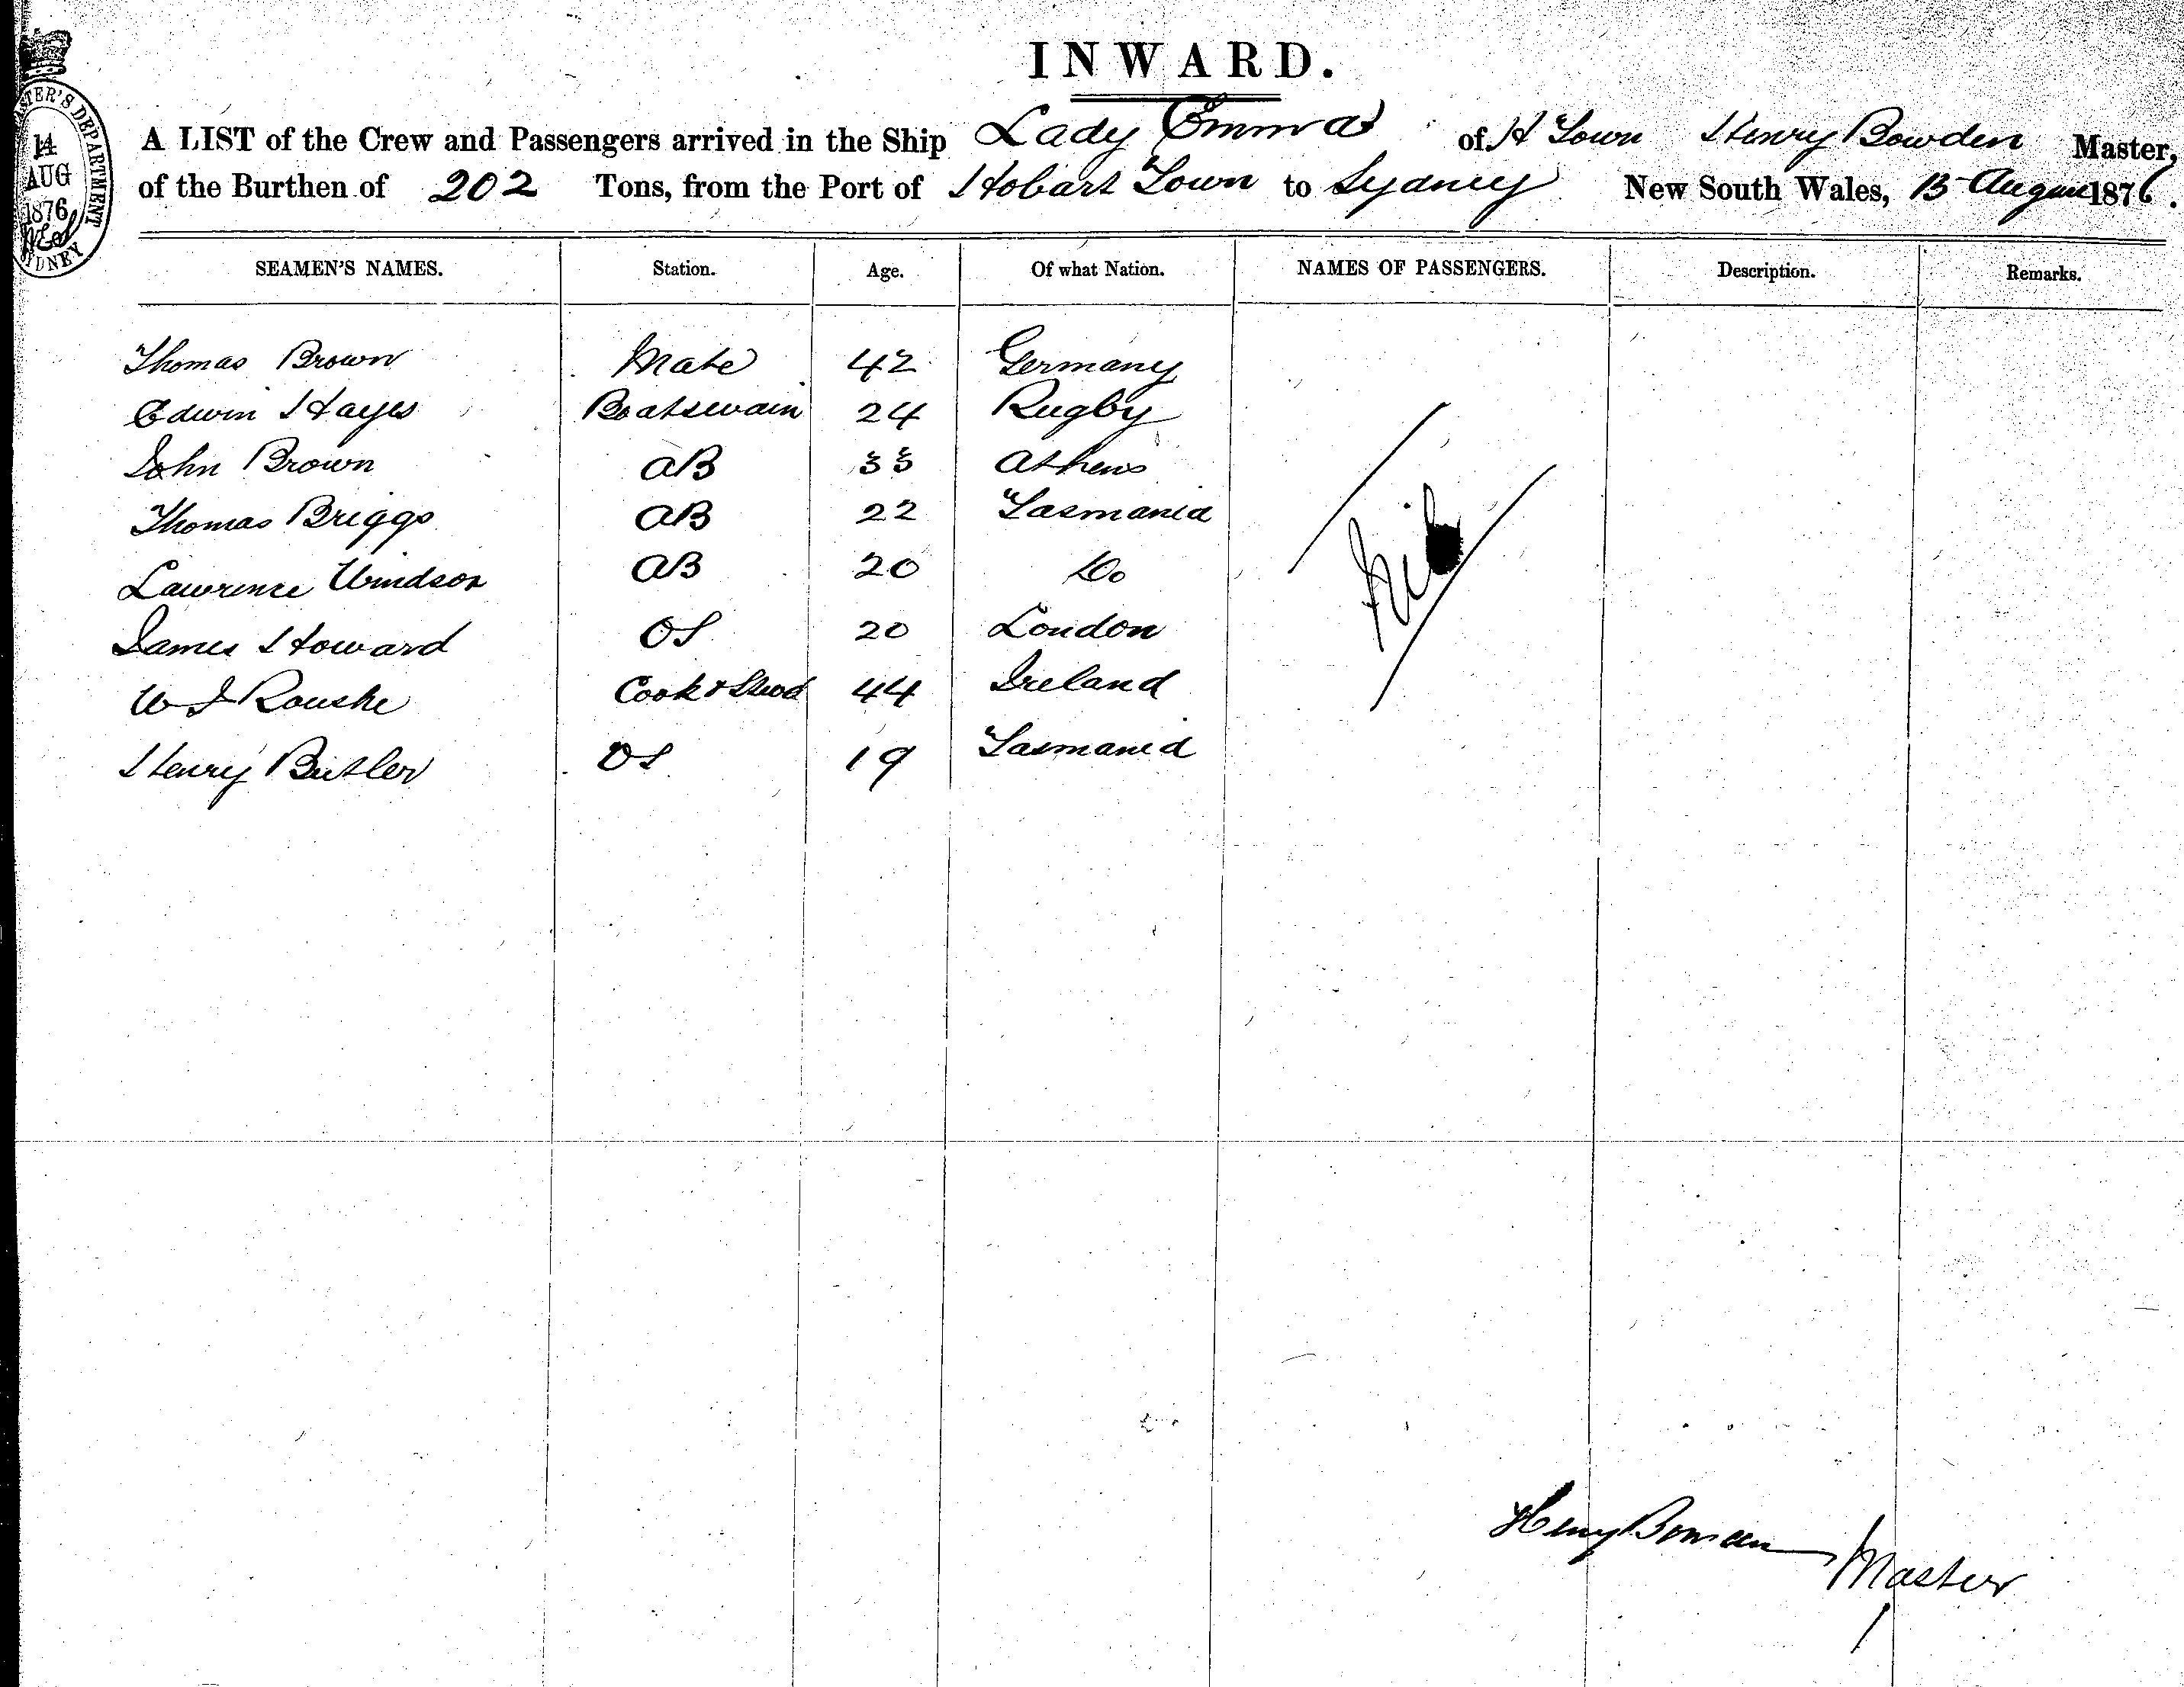 INWARD.
A LIST of the Crew and Passengers arrived in the Ship Lady Emma of H Town Henry Bowden Master,
of the Burthen of 202 Tons, from the Port of Hobart Town to Sydney New South Wales, 13 August 1876.
MASTER'S DEPARTMENT
14
AUG
1876
SYDNEY
SEAMEN'S NAMES. Station. Age. Of what Nation. NAMES OF PASSENGERS. Description. Remarks.
Thomas Brown Mate 42 Germany
Edwin Hayes Boatswain 24 Rugby
John Brown AB 33 Athens
Thomas Briggs AB 22 Tasmania
Lawrence Windsor AB 20 Do
James Howard OS 20 London
W J Rourke Cook & Stwd 44 Ireland
Henry Butler OS 19 Tasmania
Nil
Henry Bowden
Master